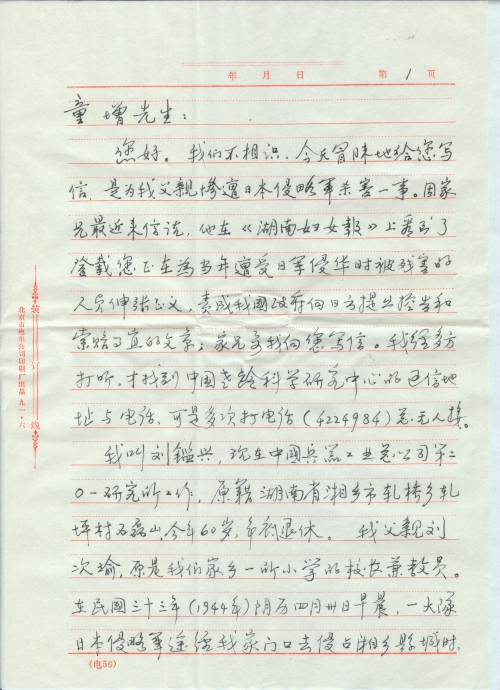 年 月 日 第 1 页
童增先生：
您好。我们不相识，今天冒昧地给您写
信，是为我父亲惨遭日本侵略军杀害一事。因家
兄最近来信说，他在《湖南妇女报》上看到了
登载您正在为当年遭受日军侵华时被残害的
人员伸张正义，责成我国政府向日方提出控告和
索赔事宜的文章；家兄要我向您写信。我经多方
打听，才找到中国老龄科学研究中心的通信地
址与电话，可是多次打电话（4224984）总无人接。
我叫刘鑑兴，现在中国兵器工业总公司第二
〇一研究所工作，原籍湖南省湘乡市轧桥乡轧
坪村石磊山，今年60岁，即到退休。我父亲刘
次瑜，原是我们家乡一所小学的校长兼教员。
在民國三十三年（1944年）阴历四月卅日早晨，一大隊
日本侵略軍途经我家门口去侵占湘乡縣城时，
装 订 线
北京市电车公司印刷厂出品 九一·六
（电56）